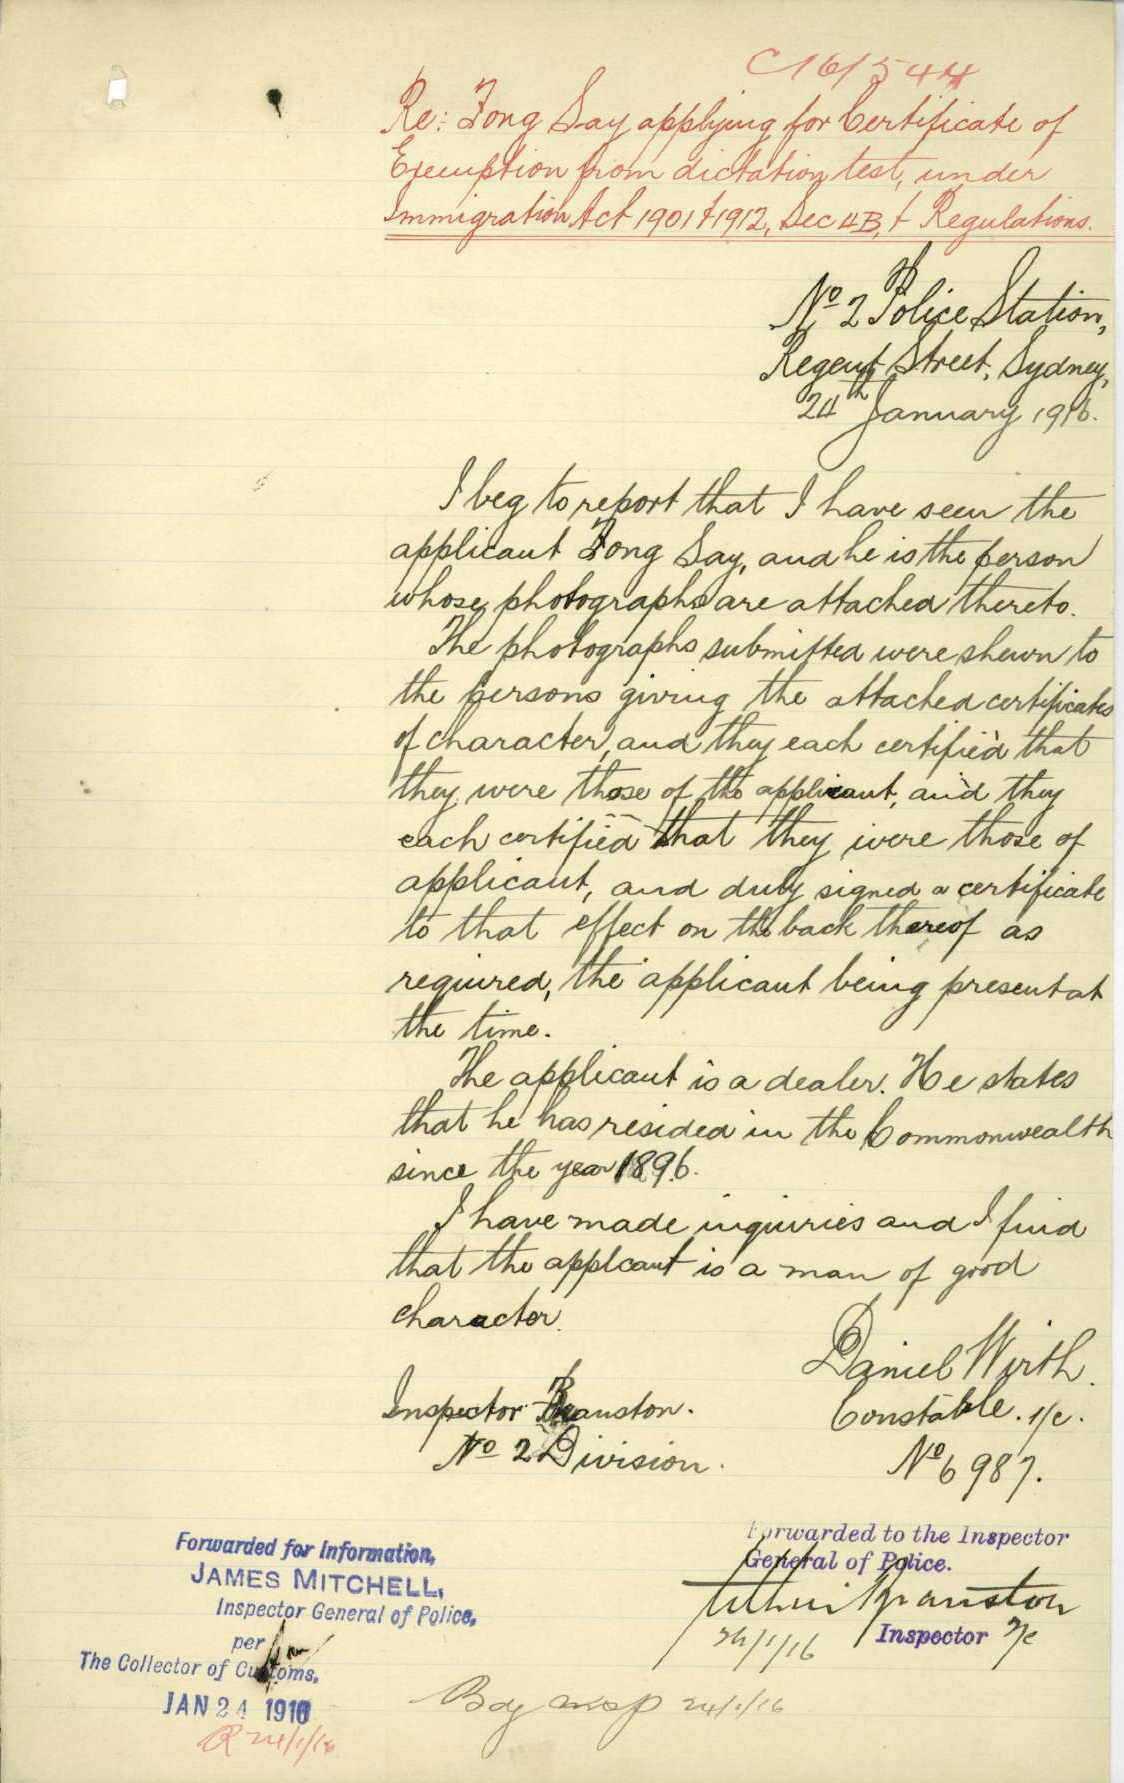 C16/544
Re: Fong Say applying for Certificate of
Exemption from dictation test, under
Immigration Act 1901 + 1912, Sec 4B, + Regulations.
No 2 Police Station,
Regent Street, Sydney,
24th January 1916.
I beg to report that I have seen the
applicant Fong Say, and he is the person
whose photographs are attached thereto.
The photographs submitted were shewn to
the persons giving the attached certificates
of character, and they each certified that
they were those of the applicant, and they
each certified that they were those of
applicant, and duly signed a certificate
to that effect on the back thereof as
required, the applicant being present at
the time.
The applicant is a dealer. He states
that he has resided in the Commonwealth
since the year 1896.
I have made inquiries and I find
that the applcant is a man of good
character.
Daniel Wirth.
Constable. 1/c.
No 6987.
Inspector Banston.
No 2 Division.
Forwarded to the Inspector
General of Police.
Inspector
24/1/16
Forwarded for Information,
JAMES MITCHELL,
Inspector General of Police,
per
The Collector of Customs.
JAN 24 1916
R 24/1/16
24/1/16